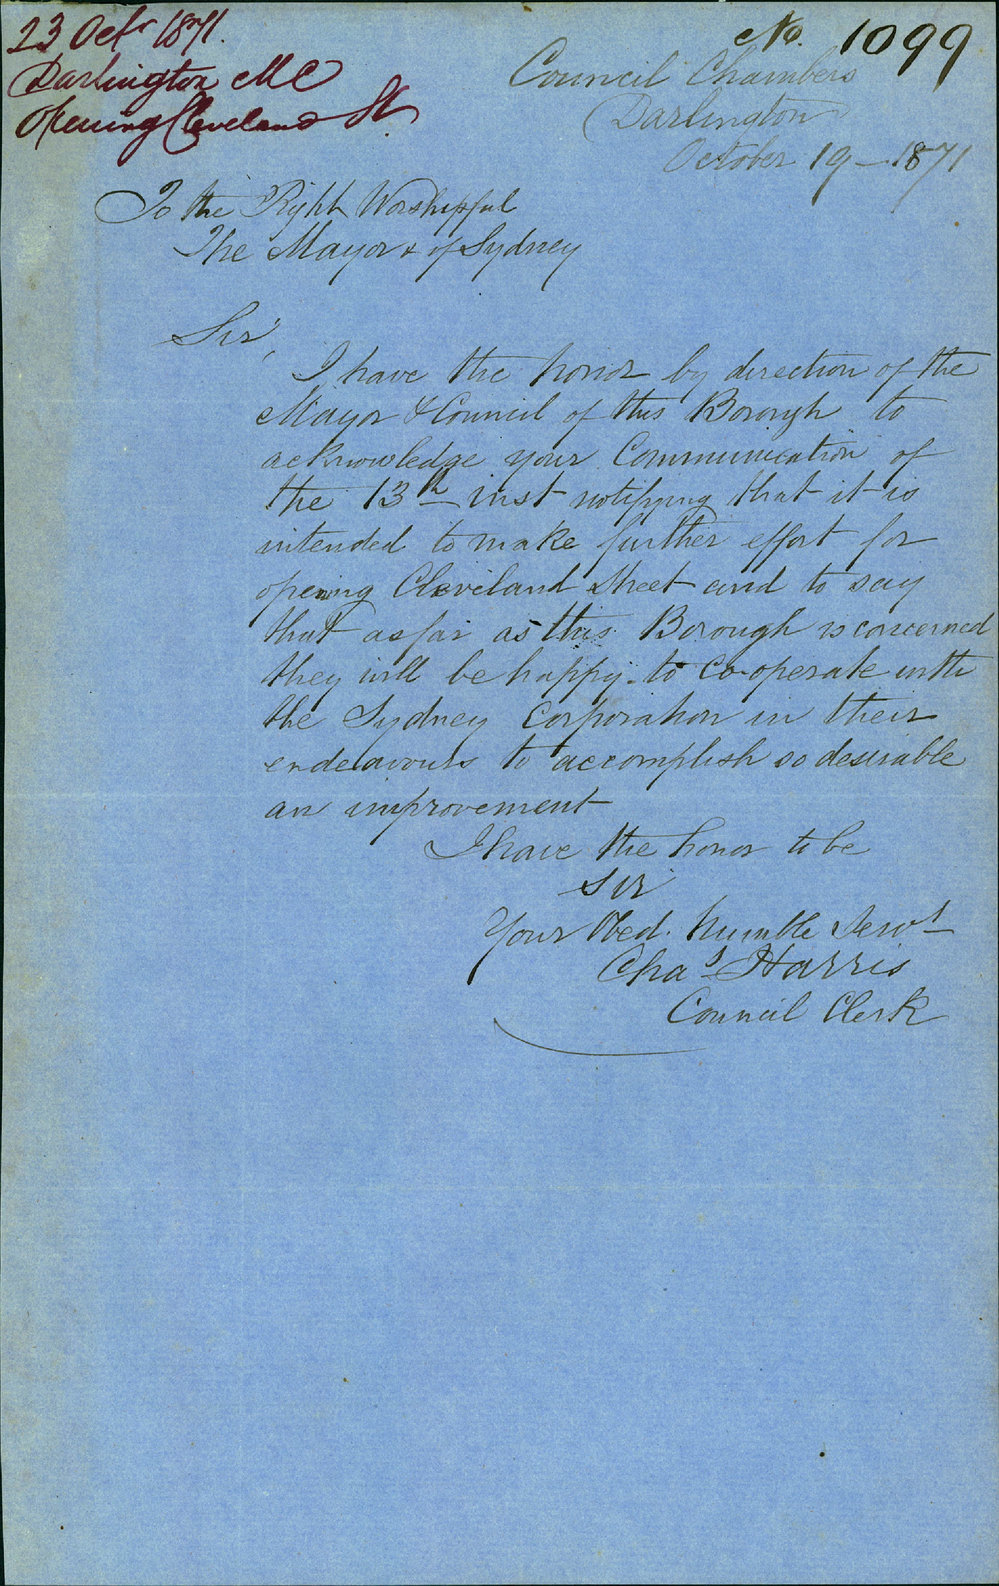 23 Octr 1871.
Darlington MC
Opening Cleveland St
No. 1099
Council Chambers
Darlington
October 19 - 1871
To the Right Worshipful
The Mayor & of Sydney
Sir,
I have the honor by direction of the
Mayor & Council of this Borough to
acknowledge your Communication of
the 13th inst notifying that it is
intended to make further effort for
opening Cleveland Street and to say
that as far as this Borough is concerned
they will be happy to co-operate with
the Sydney Corporation in their
endeavours to accomplish so desirable
an improvement
I have the honor to be
Sir
Your Obed. humble Servt
Chas Harris
Council Clerk